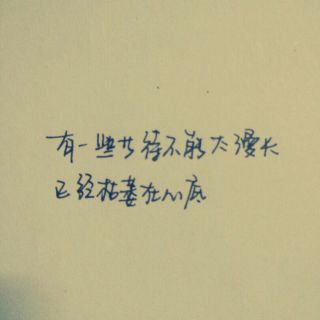 有一些廾待不能太漫长
已经枯萎在心底